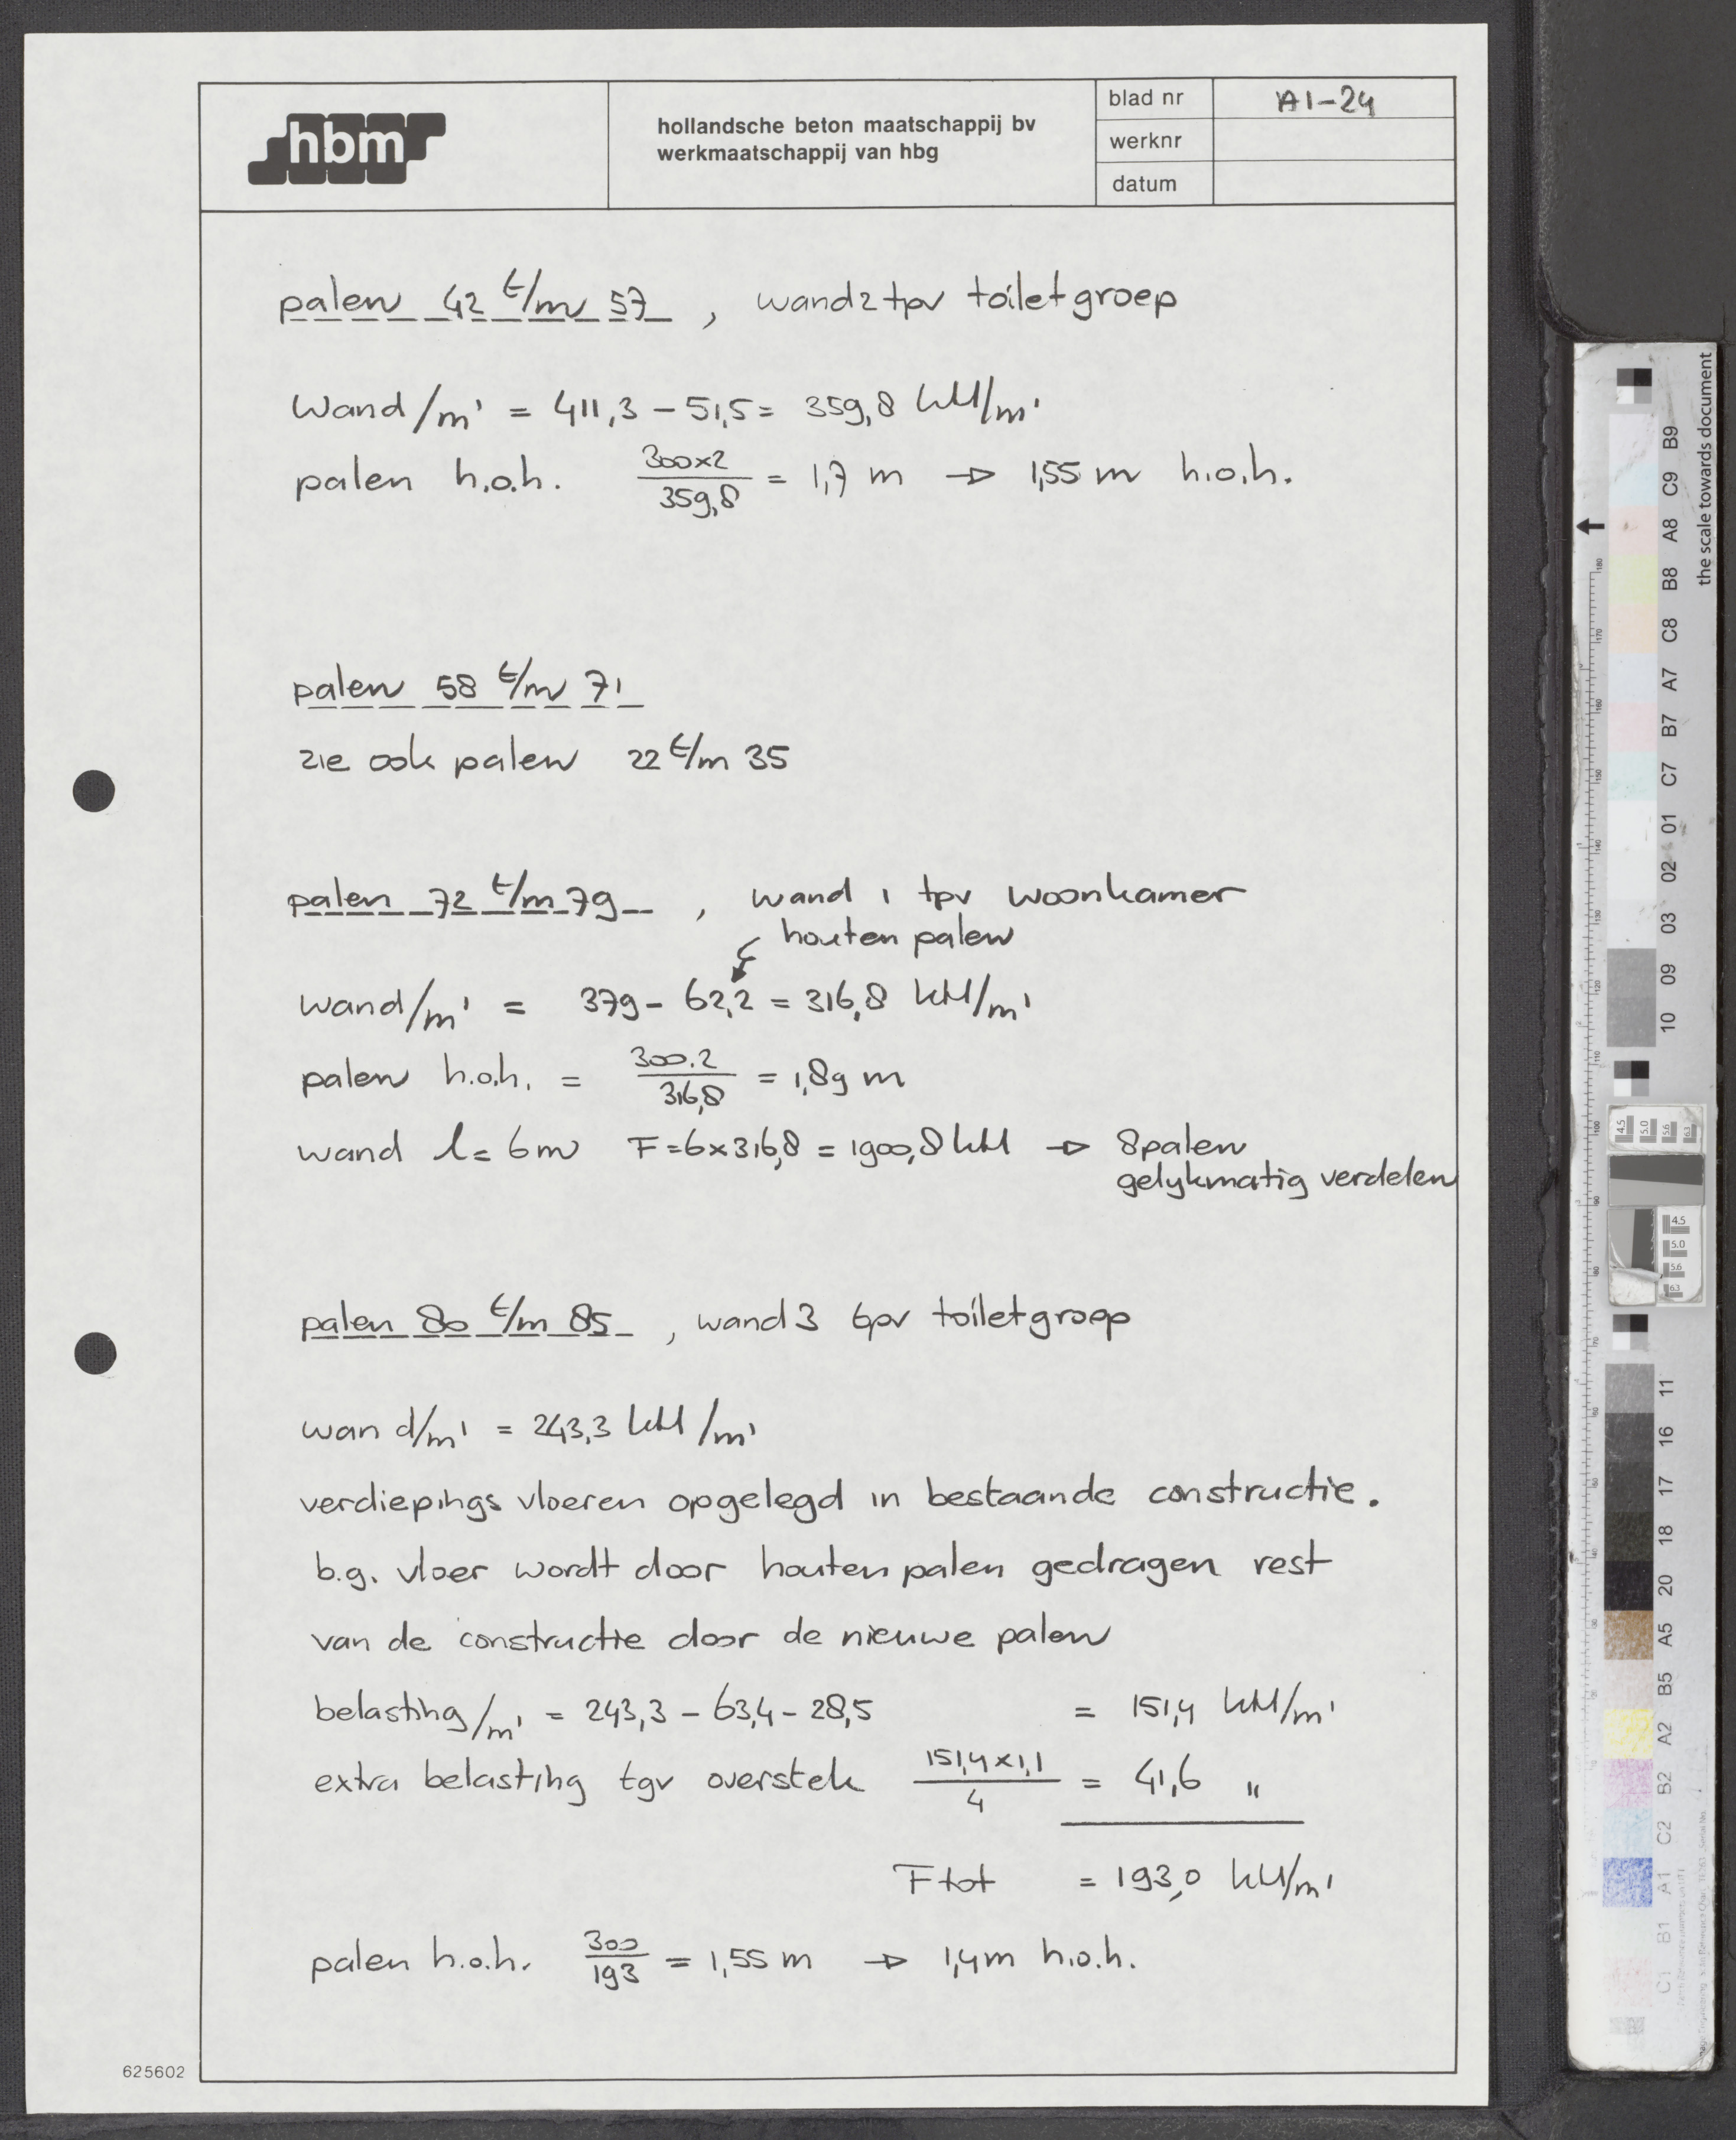 hbm
hollandsche beton maatschappij bv
werkmaatschappij van hbg
blad nr A1-24
werknr
datum
palen 42 t/m 57 , wand 2 tpv toiletgroep
Wand/m' = 411,3 - 51,5 = 359,8 kN/m'
palen h.o.h. 300x2/359,8 = 1,7 m → 1,55 m h.o.h.
palen 58 t/m 71
zie ook palen 22 t/m 35
palen 72 t/m 79 , wand 1 tpv woonkamer
houten palen
wand/m' = 379 - 62,2 = 316,8 kN/m'
palen h.o.h. = 300.2/316,8 = 1,89 m
wand l = 6 m F = 6x316,8 = 1900,8 kN → 8 palen
gelykmatig verdelen
palen 80 t/m 85 , wand 3 tpv toiletgroep
wand/m' = 243,3 kN/m'
verdiepings vloeren opgelegd in bestaande constructie.
b.g. vloer wordt door houten palen gedragen rest
van de constructie door de nieuwe palen
belasting/m' = 243,3 - 63,4 - 28,5 = 151,4 kN/m'
extra belasting tgv overstek 151,4x1,1/4 = 41,6 "
F tot = 193,0 kN/m'
palen h.o.h. 300/193 = 1,55 m → 1,4 m h.o.h.
625602
the scale towards document
B9
C9
A8
B8
C8
A7
B7
C7
01
02
03
09
10
11
16
17
18
20
A5
B5
A2
B2
C2
A1
B1
C1